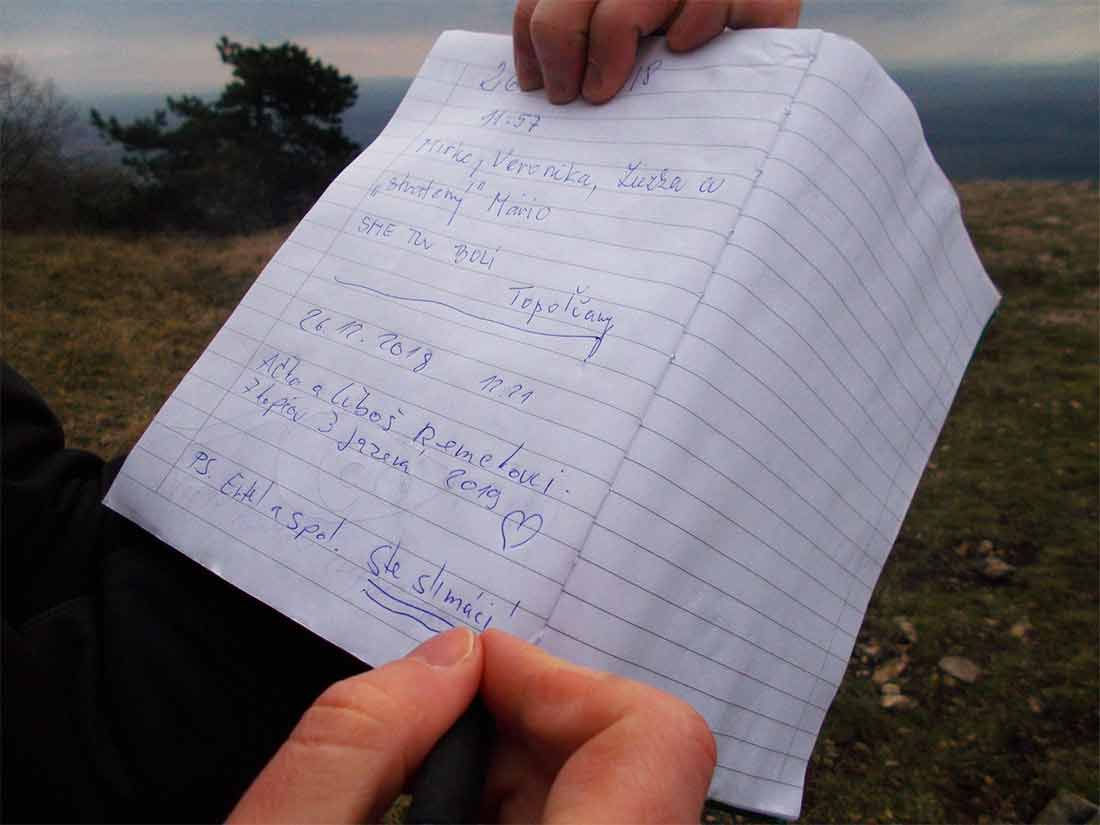 26 18
11:57
Mirka, Veronika, Zuzza a
"stratený" Mário
SME TU BOLI
Topolčany
26. 12. 2018 12.21
a Luboš Remekovci.
3 jazera 2019
PS. a spol. Ste slimáci!